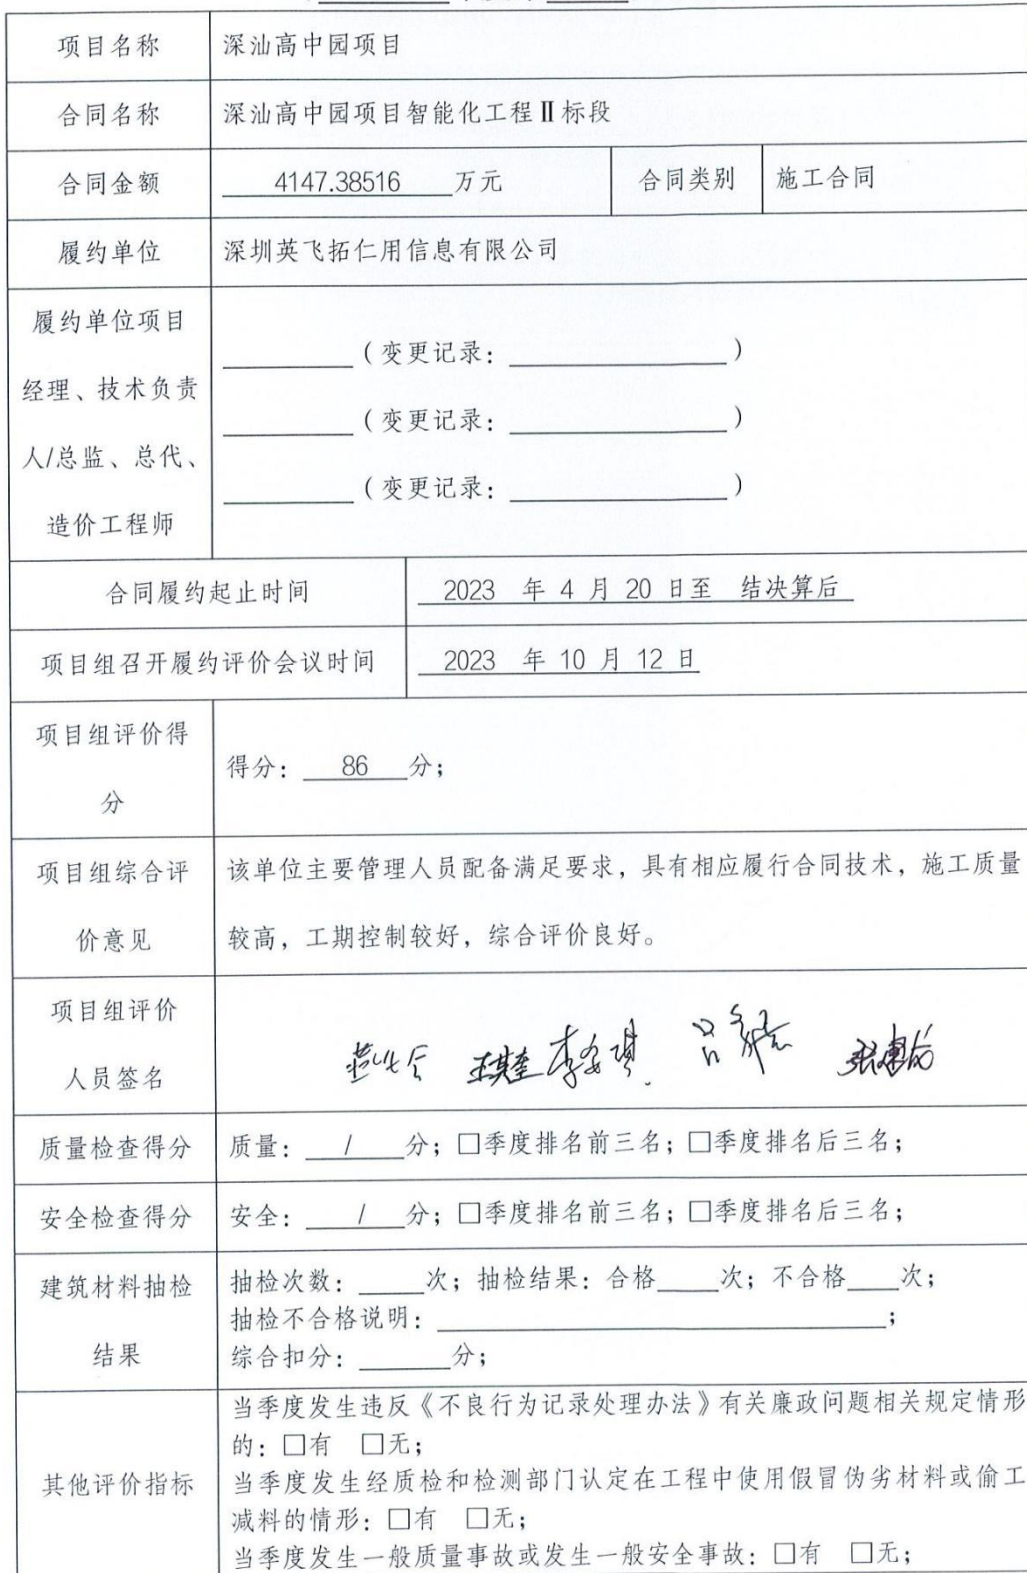 项目名称 深汕高中园项目
合同名称 深汕高中园项目智能化工程Ⅱ标段
合同金额 4147.38516 万元 合同类别 施工合同
履约单位 深圳英飞拓仁用信息有限公司
履约单位项目
经理、技术负责
人/总监、总代、
造价工程师
（变更记录：）
（变更记录：）
（变更记录：）
合同履约起止时间 2023 年 4 月 20 日至 结决算后
项目组召开履约评价会议时间 2023 年 10 月 12 日
项目组评价得
分
得分：86 分；
项目组综合评
价意见
该单位主要管理人员配备满足要求，具有相应履行合同技术，施工质量
较高，工期控制较好，综合评价良好。
项目组评价
人员签名
质量检查得分 质量：/ 分；□季度排名前三名；□季度排名后三名；
安全检查得分 安全：/ 分；□季度排名前三名；□季度排名后三名；
建筑材料抽检
结果
抽检次数：次；抽检结果：合格次；不合格次；
抽检不合格说明：；
综合扣分：分；
其他评价指标
当季度发生违反《不良行为记录处理办法》有关廉政问题相关规定情形
的：□有 □无；
当季度发生经质检和检测部门认定在工程中使用假冒伪劣材料或偷工
减料的情形：□有 □无；
当季度发生一般质量事故或发生一般安全事故：□有 □无；